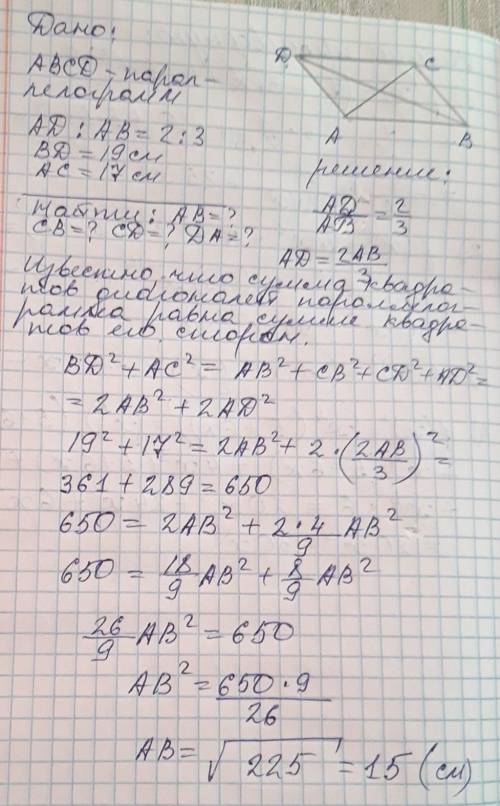 Дано:
ABCD - парал-
лелограмм
AD : AB = 2 : 3
BD = 19 см
AC = 17 см
Найти: AB = ?
CB = ? CD = ? DA = ?
D
C
A
B
решение:
AD/AB = 2/3
AD = 2AB/3
Известно, что сумма квадра-
тов диагоналей параллелог-
рамма равна сумме квадра-
тов его сторон.
BD² + AC² = AB² + CB² + CD² + AD² =
= 2AB² + 2AD²
19² + 17² = 2AB² + 2 · (2AB/3)² =
361 + 289 = 650
650 = 2AB² + 2·4/9 AB²
650 = 18/9 AB² + 8/9 AB²
26/9 AB² = 650
AB² = 650·9/26
AB = √225 = 15 (см)